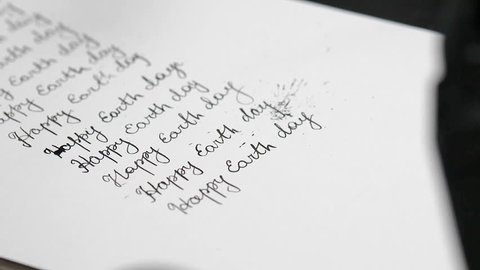 day
Earth day
Earth day
Happy Earth day
Happy Earth day
Happy Earth day
Happy Earth day
Happy Earth day
Happy Earth day